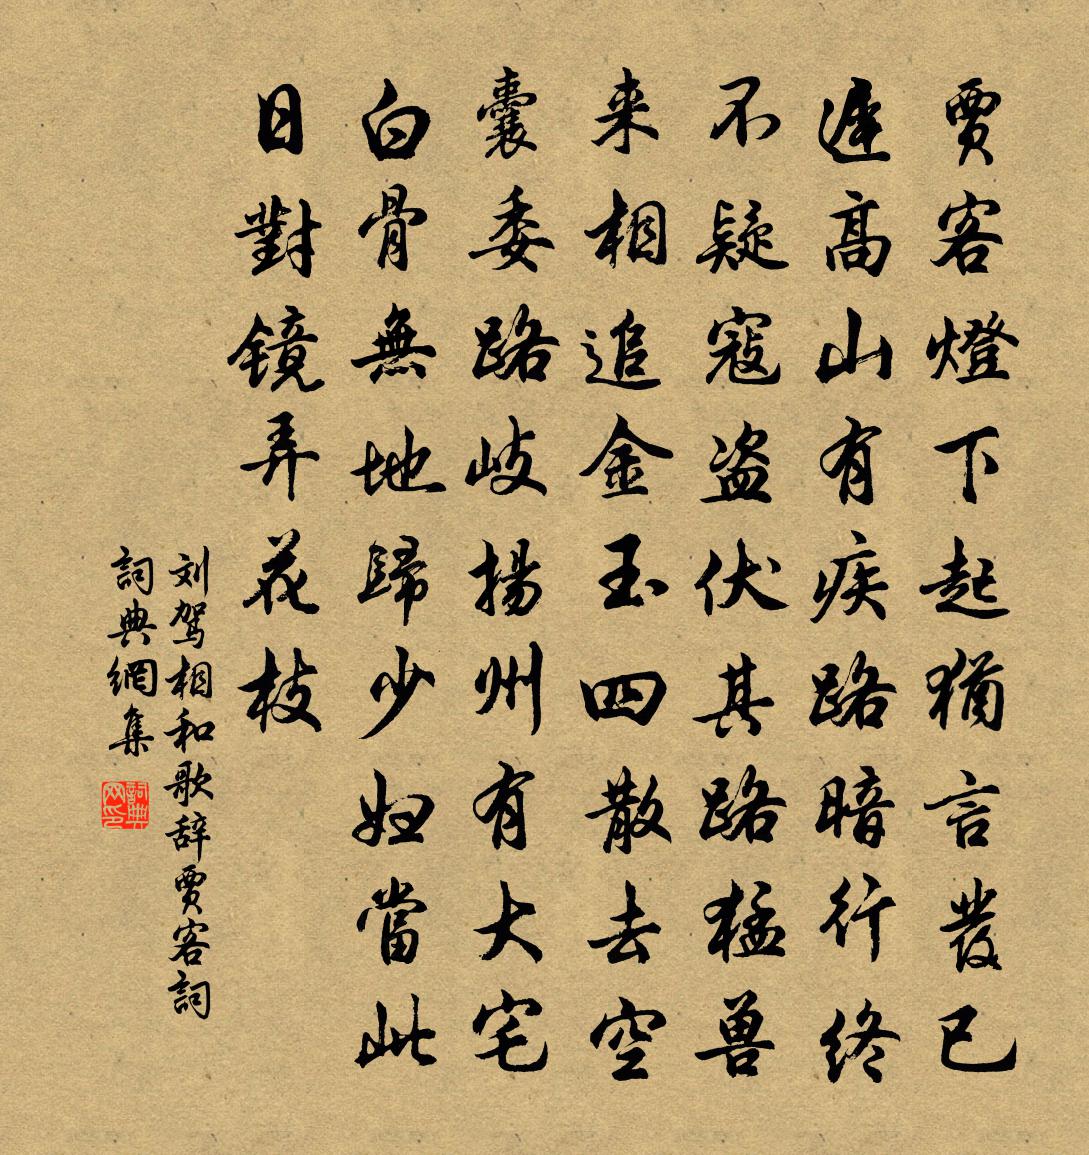 賈客燈下起猶言發已
遲高山有疾路暗行終
不疑寇盗伏其路猛兽
来相追金玉四散去空
囊委路岐揚州有大宅
白骨無地歸少妇當此
日對镜弄花枝
刘驾相和歌辞賈客詞
詞典網集
詞典网印